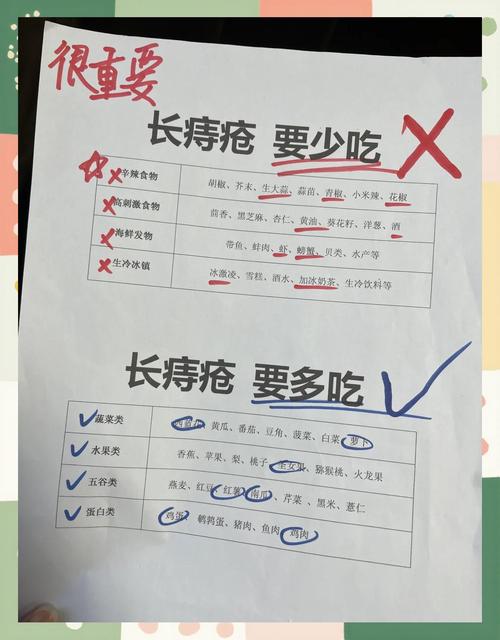 很重要
长痔疮 要少吃
辛辣食物 胡椒、芥末、生大蒜、蒜苗、青椒、小米辣、花椒
高刺激食物 茴香、黑芝麻、杏仁、黄油、葵花籽、洋葱、酒
海鲜发物 带鱼、蚌肉、虾、螃蟹、贝类、水产等
生冷冰镇 冰激凌、雪糕、酒水、加冰奶茶、生冷饮料等
长痔疮 要多吃
蔬菜类 黄瓜、番茄、豆角、菠菜、白菜、萝卜
水果类 香蕉、苹果、梨、桃子、圣女果、猕猴桃、火龙果
五谷类 燕麦、红豆、红薯、南瓜、芹菜、黑米、薏仁
蛋白类 鸡蛋、鹌鹑蛋、猪肉、鱼肉、鸡肉